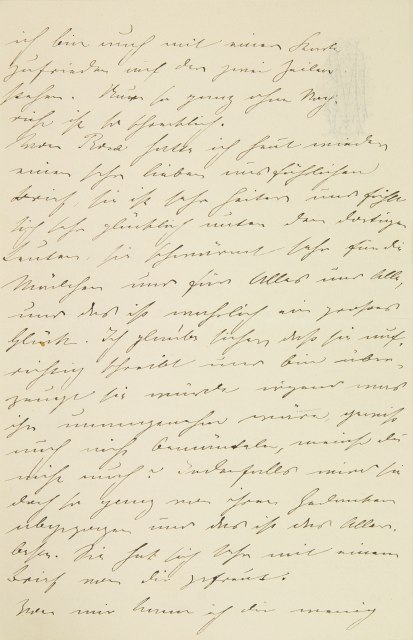 ich bin auch mit einer Karte
zufrieden auf der zwei Zeilen
stehen. Nur so ganz ohne Nach-
richt ist so schrecklich.
Von Rosa hatte ich heut wieder
einen sehr lieben ausführlichen
Brief, sie ist sehr heiter und fühlt
sich sehr glücklich unter den dortigen
Leuten, sie schwärmt sehr für die
Mädchen und für Alles und Alle,
und das ist wahrlich ein großes
Glück. Ich glaube sicher, daß sie auf-
richtig schreibt und bin über-
zeugt sie würde irgend was
ihr unangenehm wäre, gewiß
auch nicht bemänteln, meinst du
nicht auch? Jedenfalls wird sie
doch so ganz von ihren Gedanken
abgezogen und das ist das Aller-
beste. Sie hat sich sehr mit einem
Brief von dir gefreut.
Von mir kann ich dir wenig